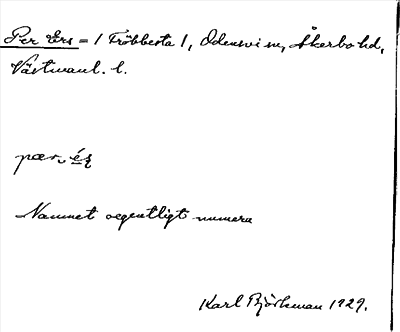 Per Ers = 1 Fröbbesta 1, Odensvi sn, Åkerbo hd,
Västmanl. l.
pær, és
Namnet oegentligt numera
Karl Björkman 1929.